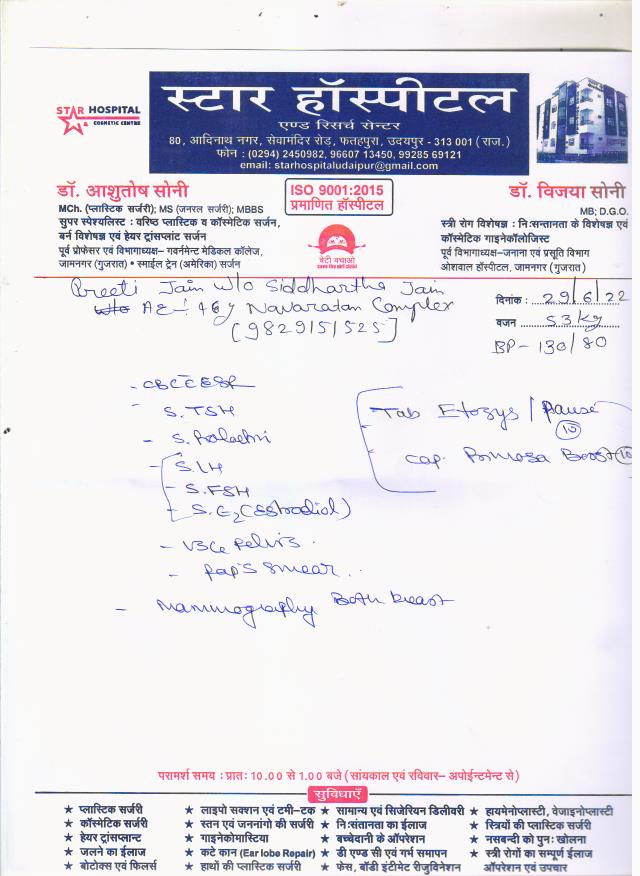 STAR HOSPITAL
& COSMETIC CENTRE
स्टार हॉस्पीटल
एण्ड रिसर्च सेन्टर
80, आदिनाथ नगर, सेवामंदिर रोड़, फतहपुरा, उदयपुर - 313 001 (राज.)
फोन : (0294) 2450982, 96607 13450, 99285 69121
email: starhospitaludaipur@gmail.com
डॉ. आशुतोष सोनी
MCh. (प्लास्टिक सर्जरी); MS (जनरल सर्जरी); MBBS
सुपर स्पेश्यलिस्ट : वरिष्ठ प्लास्टिक व कॉस्मेटिक सर्जन,
बर्न विशेषज्ञ एवं हेयर ट्रांसप्लांट सर्जन
पूर्व प्रोफेसर एवं विभागाध्यक्ष– गवर्नमेन्ट मेडिकल कॉलेज,
जामनगर (गुजरात) • स्माईल ट्रेन (अमेरिका) सर्जन
ISO 9001:2015
प्रमाणित हॉस्पीटल
बेटी बचाओ
SAVE THE GIRL CHILD
डॉ. विजया सोनी
MB; D.G.O.
स्त्री रोग विशेषज्ञ : निःसन्तानता के विशेषज्ञ एवं
कॉस्मेटिक गाइनेकॉलोजिस्ट
पूर्व विभागाध्यक्ष–जनाना एवं प्रसूति विभाग
ओशवाल हॉस्पीटल, जामनगर (गुजरात)
Preeti Jain w/o Siddhartha Jain
w/o AE - 46y Navaratan Complex
[9829151525]
दिनांक : 29/6/22
वजन 53 kg
BP - 130/80
- CBC ESR
- S. TSH
- S. Prolactin
- S. LH
- S. FSH
- S. E2 (Estradiol)
- USG Pelvis.
- Pap's Smear.
- Mammography Both breast
Tab Etosys / Pause
10
Cap. Primosa Boost 10
परामर्श समय : प्रातः 10.00 से 1.00 बजे (सांयकाल एवं रविवार– अपोईन्टमेन्ट से)
सुविधाएँ
★ प्लास्टिक सर्जरी ★ लाइपो सक्शन एवं टमी–टक ★ सामान्य एवं सिजेरियन डिलीवरी ★ हायमेनोप्लास्टी, वेजाइनोप्लास्टी
★ कॉस्मेटिक सर्जरी ★ स्तन एवं जननांगो की सर्जरी ★ निःसंतानता का ईलाज ★ स्त्रियों की प्लास्टिक सर्जरी
★ हेयर ट्रांसप्लान्ट ★ गाइनेकोमास्टिया ★ बच्चेदानी के ऑपरेशन ★ नसबन्दी को पुनः खोलना
★ जलने का ईलाज ★ कटे कान (Ear lobe Repair) ★ डी एण्ड सी एवं गर्भ समापन ★ स्त्री रोगों का सम्पूर्ण ईलाज
★ बोटोक्स एवं फिलर्स ★ हाथों की प्लास्टिक सर्जरी ★ फेस, बॉडी इंटीमेट रीजुविनेशन ऑपरेशन एवं उपचार